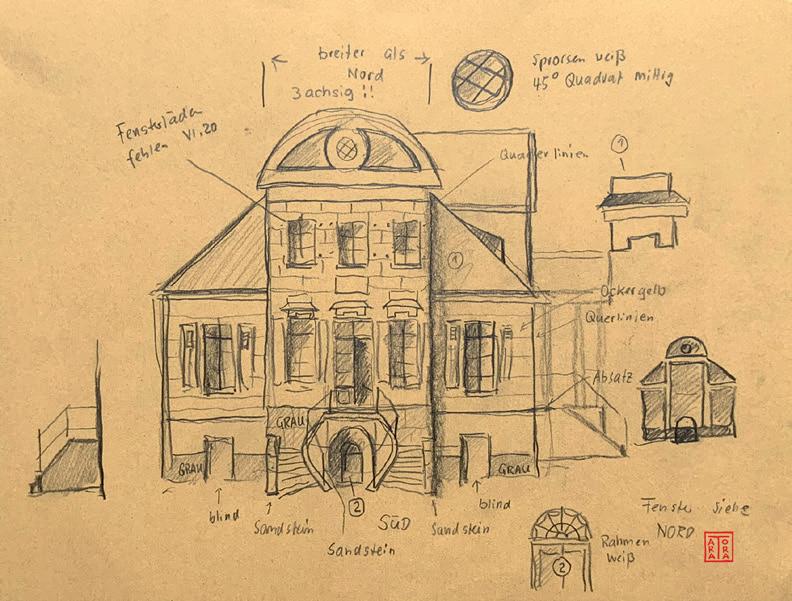 breiter als
Nord
3achsig !!
Sprorsen weiß
45° Quadrat mittig
Fensterläden
fehlen VI.20
Quaderlinien
1
1
Ockergelb
Querlinien
2
Absatz
GRAU
GRAU
GRAU
blind
Sandstein
2
SÜD
Sandstein
blind
Sandstein
Fenster siehe
NORD
Rahmen
weiß
2
ARA
TORA